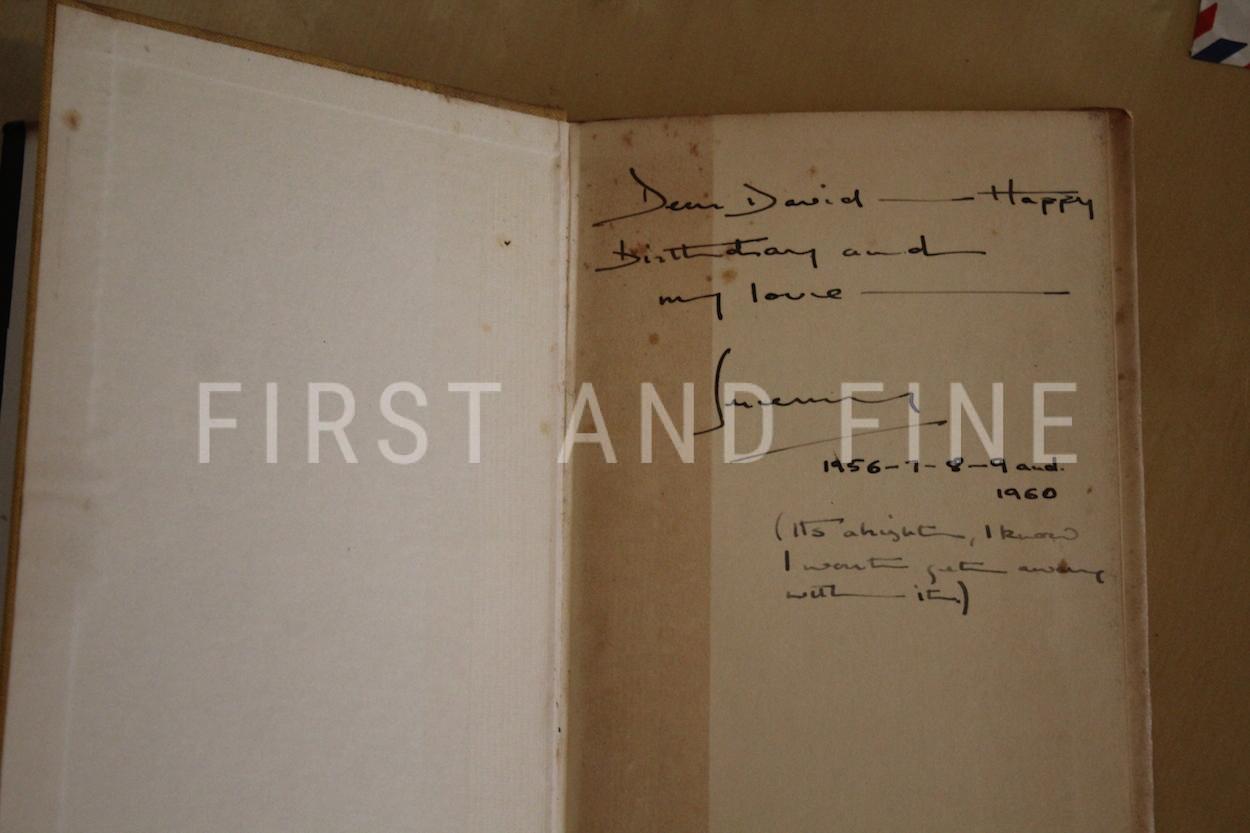 Dear David — Happy
Birthday and
my love —
FIRST AND FINE
1956-7-8-9 and.
1960
(Its alright, I know
I wont get away
with it.)